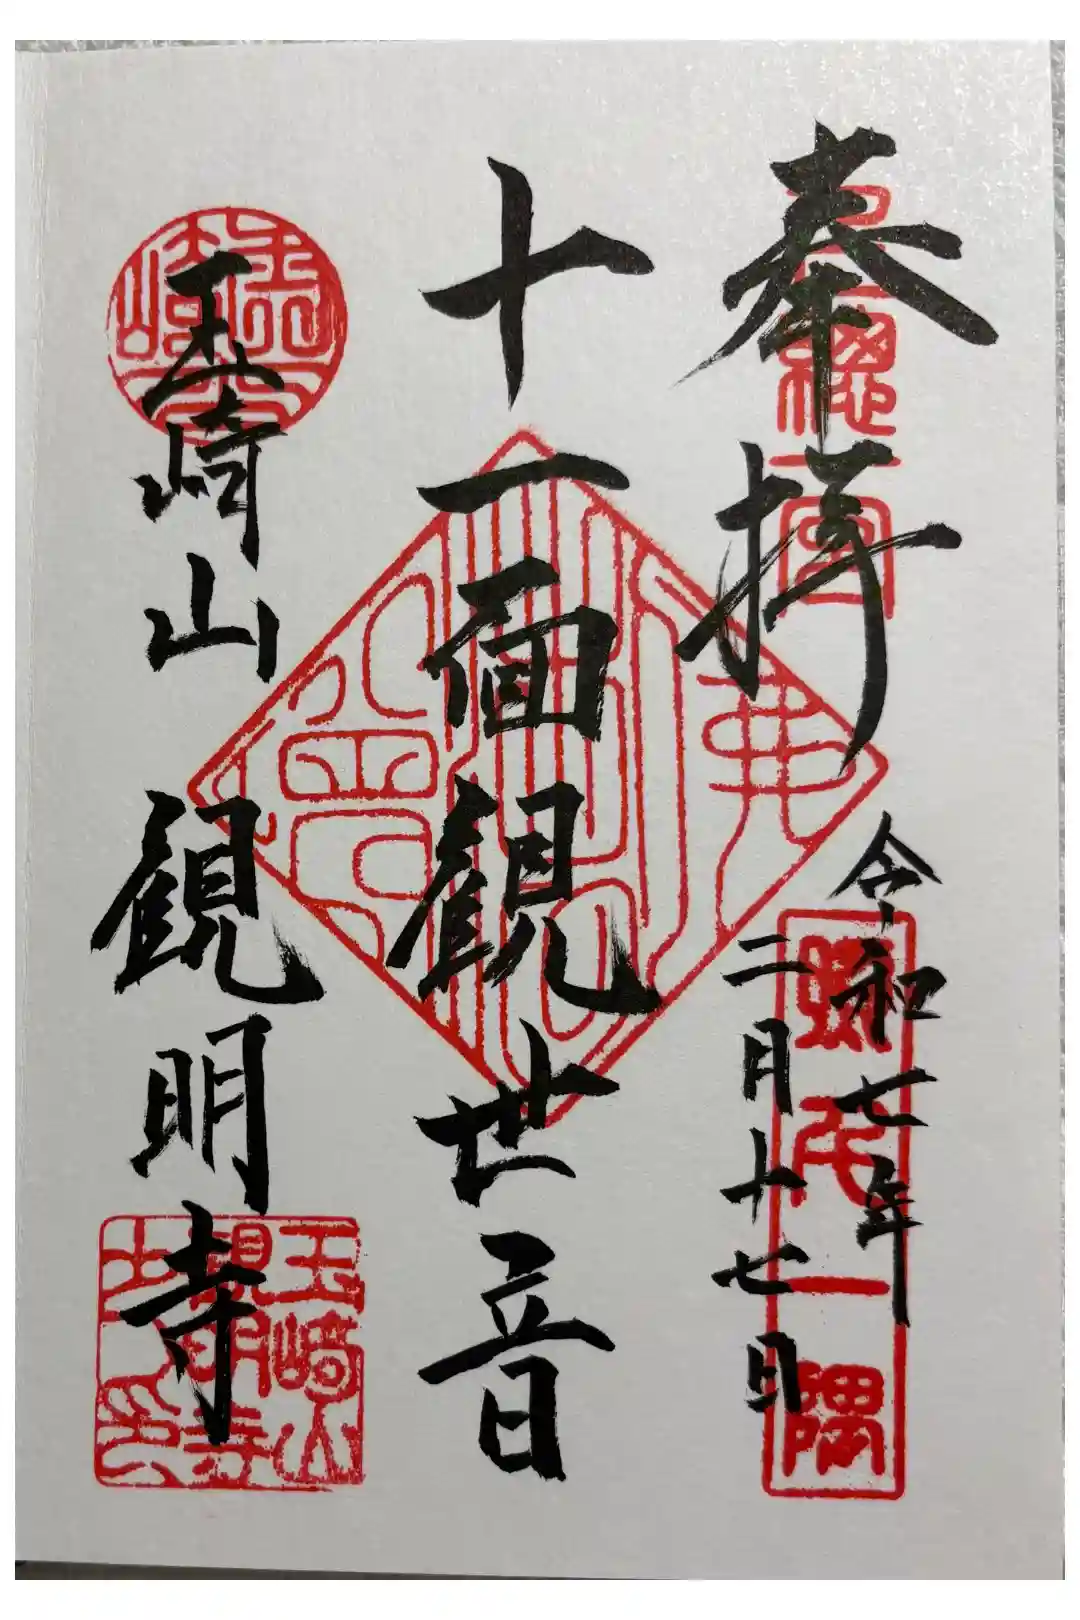 奉拝
上総一宮
令和七年
二月十七日
照千一隅
十一面観世音
玉崎山
観明寺
玉崎山
観明寺